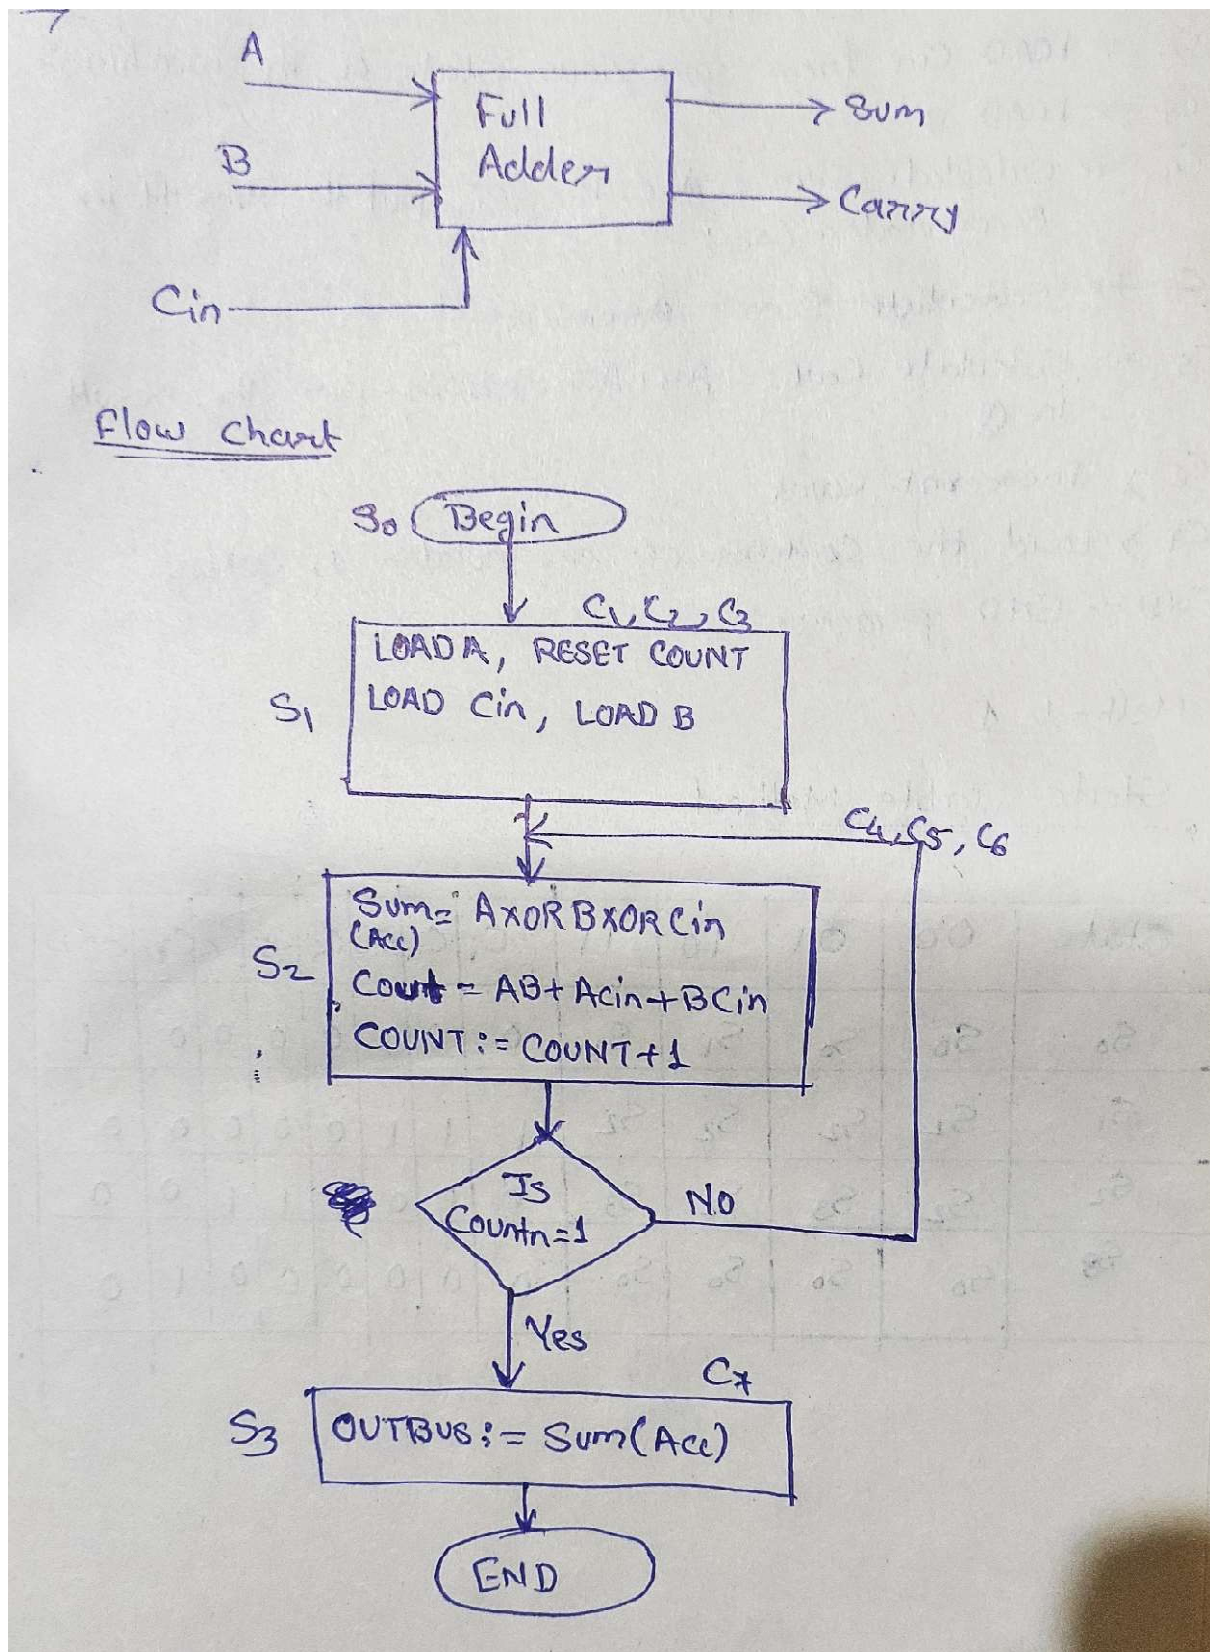 A
Full
Adder
Sum
B
Carry
Cin
Flow chart
S0 Begin
C1, C2, C3
LOAD A, RESET COUNT
S1
LOAD Cin, LOAD B
C4, C5, C6
Sum = A XOR B XOR Cin
(Acc)
S2
Cout = AB + ACin + BCin
COUNT := COUNT + 1
Is
Countn = 1
NO
Yes
C7
S3
OUTBUS := Sum (Acc)
END